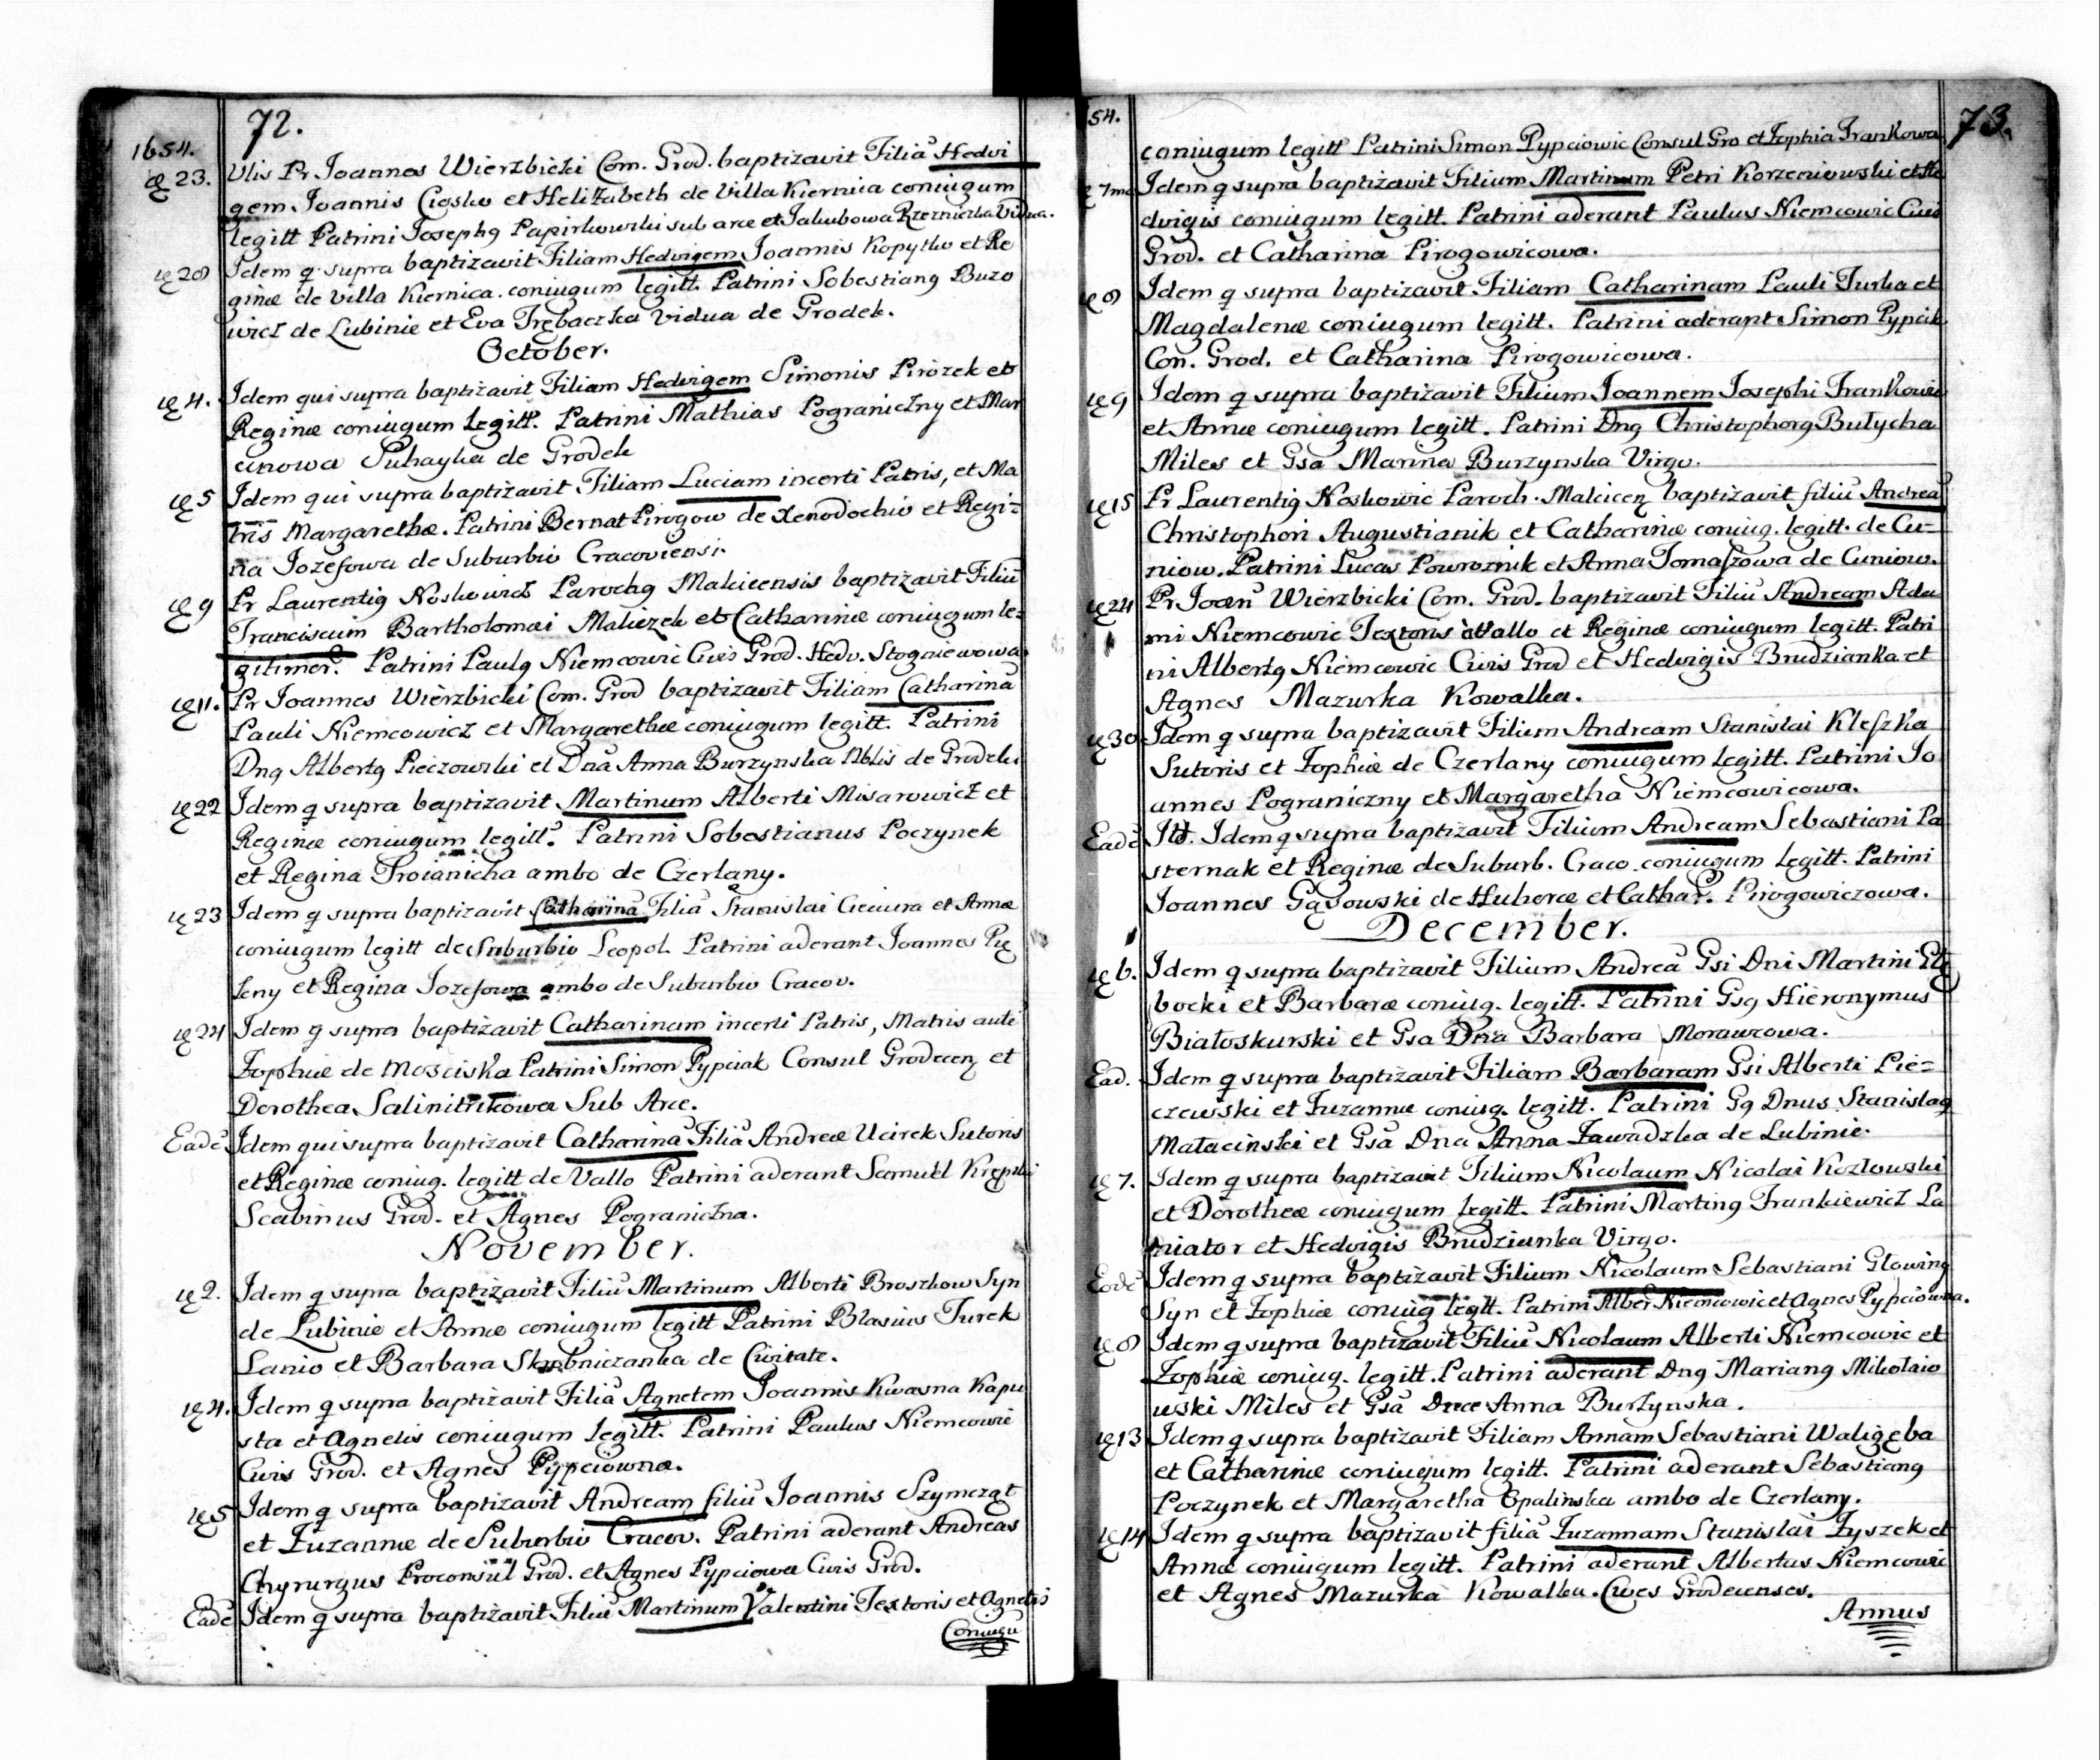 72.
1654.
Vlis Pr Joannes Wierzbicki Com. Grod. baptizavit Filiā Hedvi
23. gem Joannis Ciosko et Helizabeth de Villa Kiernica coniugum
legitt Patrini Josephq Papirkowski sub arce et Jakubowa Rzezniczka Vidua.
28 Idem q supra baptizavit Filiam Hedvigem Joannis Kopytko et Re
ginæ de Villa Kiernica. coniugum legitt. Patrini Sobestianq Buzo
wicz de Lubinie et Eva Trębaczka Vidua de Grodek.
October.
4. Idem qui supra baptizavit Filiam Hedvigem Simonis Pirozek et
Reginæ coniugum legitt. Patrini Mathias Pograniczny et Mar
cinowa Puhayka de Grodek
5 Idem qui supra baptizavit Filiam Luciam incerti Patris, et Ma
tris Margarethæ. Patrini Bernat Pirogow de Xenodochio et Regi-
na Jozefowa de Suburbio Cracoviensi.
9 Pr Laurentiq Noskowicz Parochq Malcicensis baptizavit Filiū
Franciscum Bartholomæi Maliczek et Catharinæ coniugum le-
gitimor. Patrini Paulq Niemcowic Civis Grod. Hedv. Stogniewowa
11. Pr Joannes Wierzbicki Com. Grod baptizavit Filiam Catharinā
Pauli Niemcowicz et Margarethæ coniugum legitt. Patrini
Dnq Albertq Pieczowski et Dna Anna Burzynska Nblis de Grodek
22 Idem q supra baptizavit Martinum Alberti Misarowicz et
Reginæ coniugum legitt. Patrini Sobestianus Poczynek
et Regina Troianicha ambo de Czerlany.
23 Idem q supra baptizavit Catharinā Filiā Stanislai Cieciura et Annæ
coniugum legitt de Suburbio Leopol. Patrini aderant Joannes Pie
leny et Regina Jozefowa ambo de Suburbio Cracov.
24 Idem q supra baptizavit Catharinam incerti Patris, Matris autē
Zophiæ de Mosciska Patrini Simon Pypciak Consul Grodecen et
Dorothea Salinitrikowa Sub Arce.
Eadē Idem qui supra baptizavit Catharinā Filiā Andreæ Ucirek Sutoris
et Reginæ coniug. legitt de Vallo Patrini aderant Samuel Krępski
Scabinus Grod. et Agnes Pograniczna.
November.
2. Idem q supra baptizavit Filiū Martinum Alberti Broszkow Syn
de Lubinie et Annæ coniugum legitt Patrini Blasius Turek
Lanio et Barbara de Civitate.
4. Idem q supra baptizavit Filiā Agnetem Joannis Kwasna Kapu
sta et Agnetis coniugum legitt. Patrini Paulus Niemcowic
Civis Grod. et Agnes Pypciowna.
5 Idem q supra baptizavit Andream filiū Joannis Szymczat
et Zuzannæ de Suburbio Cracov. Patrini aderant Andreas
Chyrurgus Proconsul Grod. et Agnes Pypciowa Civis Grod.
Eadē Idem q supra baptizavit Filiū Martinum Valentini Textoris et Agnetis
Coniugū
54.
73.
coniugum legitt Patrini Simon Pypciowic Consul Gro et Zophia Frankowa
7mo Idem q supra baptizavit Filium Martinum Petri Korzeniowski et He
dvigis coniugum legitt. Patrini aderant Paulus Niemcowic Civis
Grod. et Catharina Pirogowicowa.
8 Idem q supra baptizavit Filiam Catharinam Pauli Turka et
Magdalenæ coniugum legitt. Patrini aderant Simon Pypcik
Con. Grod. et Catharina Pirogowicowa.
9 Idem q supra baptizavit Filium Joannem Josephi Frankowic
et Annæ coniugum legitt. Patrini Dnq Christophorq Bułycha
Miles et Gsa Marina Burzynska Virgo.
15 Pr Laurentiq Noskowic Paroch. Malcicen baptizavit filiū Andreā
Christophori Augustianik et Catharinæ coniug. legitt. de Cu-
niow. Patrini Lucas Powroznik et Anna Tomaszowa de Cuniow.
24 Pr Joan Wierzbicki Com. Grod. baptizavit Filiū Andream Ada
mi Niemcowic Textoris Vallo et Reginæ coniugum legitt. Patri
ni Albertq Niemcowic Civis Grod et Hedvigis Brudzianka et
Agnes Mazurka Kowalka.
30 Idem q supra baptizavit Filium Andream Stanislai Kleszka
Sutoris et Zophiæ de Czerlany coniugum legitt. Patrini Jo
annes Pograniczny et Margaretha Niemcowicowa.
Eadē Itt. Idem q supra baptizavit Filium Andream Sebastiani Pa
sternak et Reginæ de Suburb. Craco. coniugum legitt. Patrini
Joannes Gąsowski de Huberæ et Cathar. Pirogowiczowa.
December.
6. Idem q supra baptizavit Filium Andreā Gsi Dni Martini Głę
bocki et Barbaræ coniug. legitt. Patrini Gsq Hieronymus
Białoskurski et Gsa Dna Barbara Morawcowa.
Ead. Idem q supra baptizavit Filiam Barbaram Gsi Alberti Pie-
czewski et Zuzannæ coniug. legitt. Patrini Gq Dnus Stanislaq
Matacinski et Gsa Dna Anna Zawadzka de Lubinie.
7. Idem q supra baptizavit Filium Nicolaum Nicolai Kozłowski
et Dorotheæ coniugum legitt. Patrini Martinq Frankiewicz La
niator et Hedvigis Brudzianka Virgo.
Eodē Idem q supra baptizavit Filium Nicolaum Sebastiani Glowinq
Syn et Zophiæ coniug legitt. Patrini Alber Niemcowic et Agnes Pypciowna.
8 Idem q supra baptizavit Filiū Nicolaum Alberti Niemcowic et
Zophiæ coniug. legitt. Patrini aderant Dnq Marianq Mikołaio
wski Miles et Gsa Dnæ Anna Burzynska.
13 Idem q supra baptizavit Filiam Annam Sebastiani Waligęba
et Catharinæ coniugum legitt. Patrini aderant Sebastianq
Poczynek et Margaretha Opalinska ambo de Czerlany.
14 Idem q supra baptizavit filiā Zuzannam Stanislai Zyszek et
Annæ coniugum legitt. Patrini aderant Albertus Niemcowic
et Agnes Mazurka Kowalka. Cives Grodecenses.
Annus